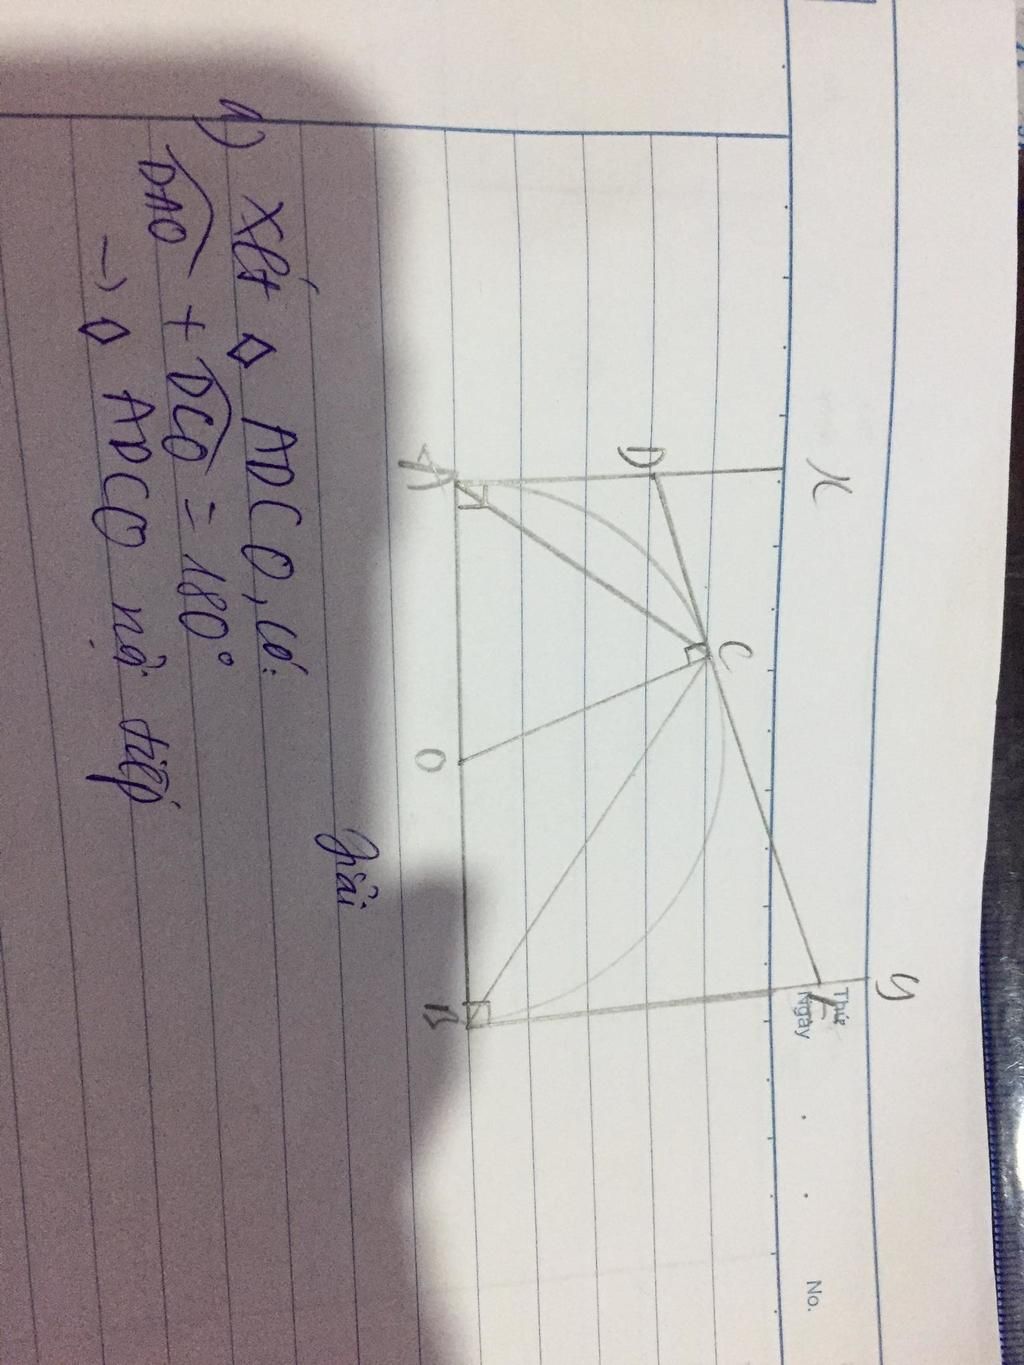 Thứ
Ngày
No.
x
y
D
C
E
A
O
B
Giải
a) Xét ◇ ADCO, có:
DAO + DCO = 180°
→ ◇ ADCO nội tiếp